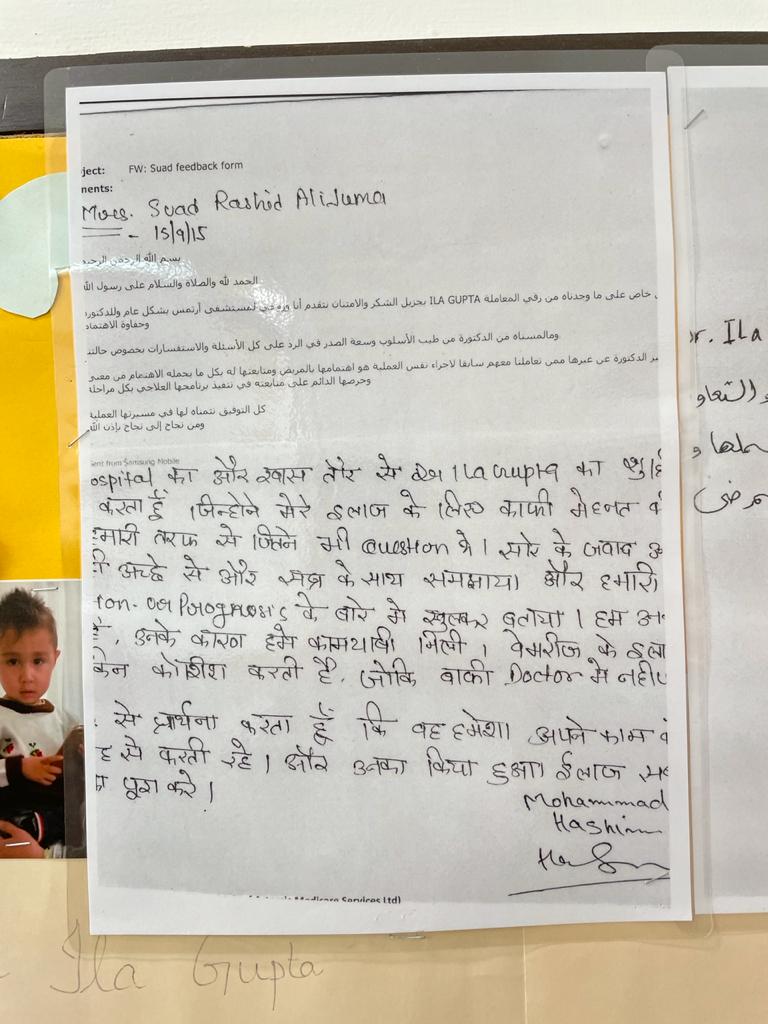 ject: FW: Suad feedback form
nents:
Mrs. Suad Rashid AliJuma
- 15/9/15
بسم الله الرحمن الرحيم
الحمد لله والصلاة والسلام على رسول الله
خاص على ما وجدناه من رقي المعاملة ILA GUPTA بجزيل الشكر والامتنان نتقدم أنا لمستشفى أرتمس بشكل عام وللدكتورة
وحفاوة الاهتمام
ومالمسناه من الدكتورة من طيب الأسلوب وسعة الصدر في الرد على كل الأسئلة والاستفسارات بخصوص حالتنا
الدكتورة عن غيرها ممن تعاملنا معهم سابقا لاجراء نفس العملية هو اهتمامها بالمريض ومتابعتها له بكل ما يحمله الاهتمام من معنى
وحرصها الدائم على متابعته في تنفيذ برنامجها العلاجي بكل مراحلة
كل التوفيق نتمناه لها في مسيرتها العملية
ومن نجاح إلى نجاح بإذن الله
ent from Samsung Mobile
ospital का और खास तौर से Dr Ila Gupta का
करता हूँ जिन्होने मेरे इलाज के लिए काफी मेहनत
हमारी तरफ से जितने भी Question थे। सारे के जवाब
अच्छे से और सब्र के साथ समझाया। और हमारी
tion- or Prognosis के बारे मे खुलकर बताया। हम
है, उनके कारण हमे कामयाबी मिली। वे मरीज के
कोशिश करती है, जोकि बाकी Doctor मे नही
से प्रार्थना करता हूँ कि वह हमेशा अपने काम
से करती रहे। और उनका किया हुआ इलाज
पूरा करे।
Mohammad
Hashim
Medicare Services Ltd)
r. Ila
والتعاو
Ila Gupta